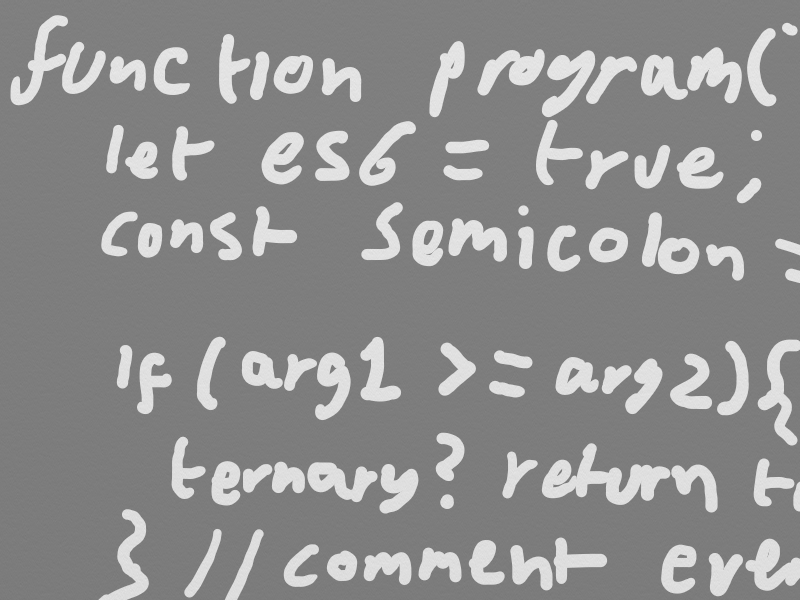 function program(
let es6 = true;
const semicolon =
if (arg1 >= arg2){
ternary? return
} // comment